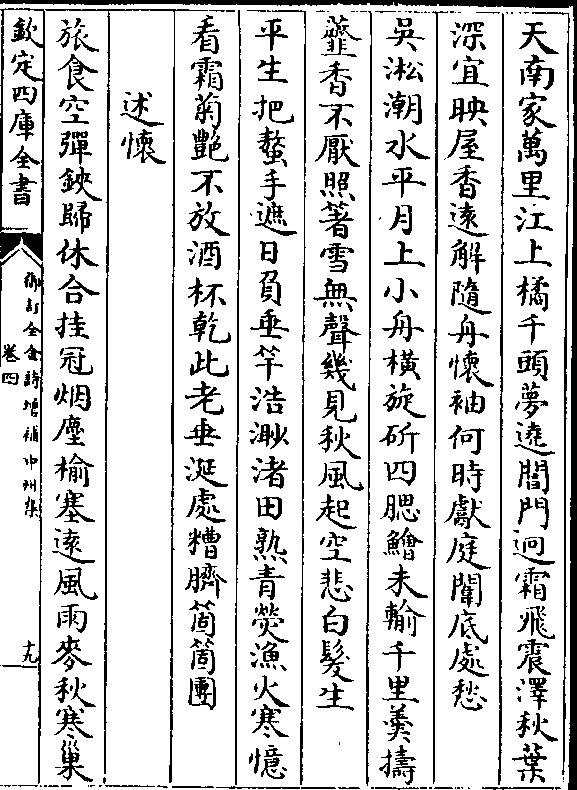 天南家萬里江上橘千頭夢遶閶門迥霜飛震澤秋葉
深宜映屋香遠解隨舟懷袖何時獻庭闈底處愁
吳淞潮水平月上小舟橫旋斫四腮鱠未輸千里羹擣
虀香不厭照箸雪無聲幾見秋風起空悲白髮生
平生把螯手遮日負垂竿浩渺渚田熟青熒漁火寒憶
看霜菊艷不放酒杯乾此老垂涎處糟臍箇箇團
述懷
旅食空彈鋏歸休合挂冠烟塵榆塞遠風雨麥秋寒巢
欽定四庫全書
御訂全金詩增補中州集
卷四
十九